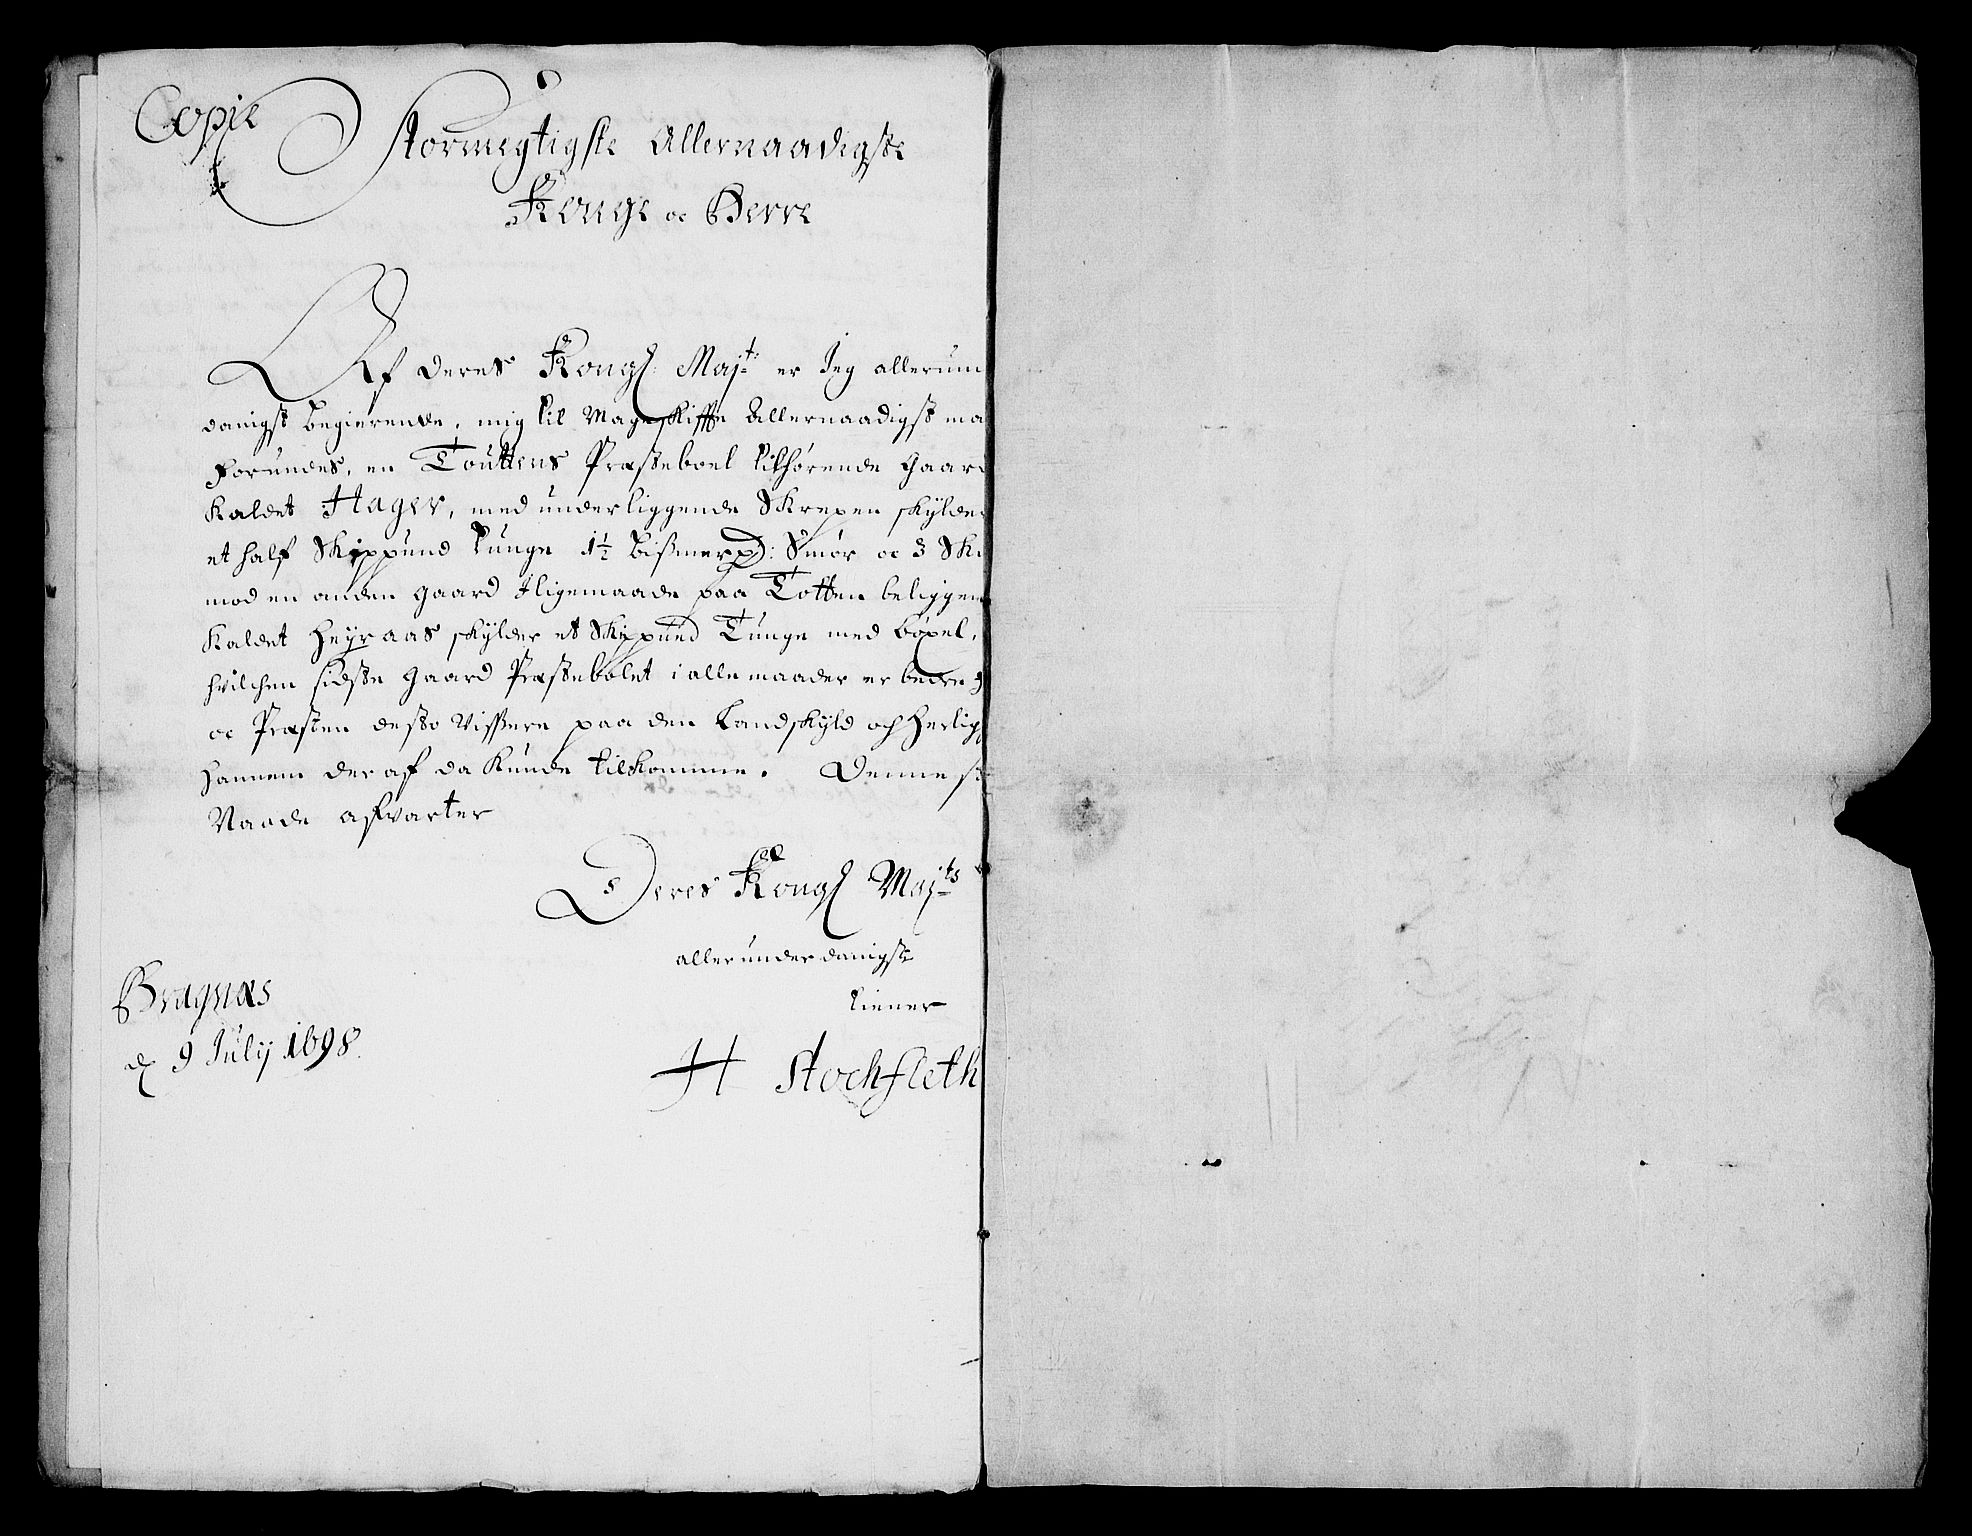 Copie
Stormegtigste Allernaadigste
Konge oc Herre
Af Deres Kongl Maj.t er Jeg allerun
danigst begierende, mig til Mageskiffte Allernaadigst ma
forundes, en Touttens Præsteboel tilhørende Gaard
kaldet Hager, med underliggende Skrepen skylde
et half Skippund tunge 1½ bißmerpd: Smør oc 3 Ski
mod en anden gaard Iligemaade paa Totten beliggen
kaldet Heyraas skylder et Skippund Tunge med bøxel,
hvilchen sidste gaard Præstebolet i alle maader er bedre
oc Præsten desto vissere paa den Landskyld och herlig
hannem der af da kunde tilkomme. Denne st
Naade afvarter
Deres Kongl Maj.ts
allerunderdanigste
tiener
Bragnæs
d 9 July 1698.
H Stockfleth